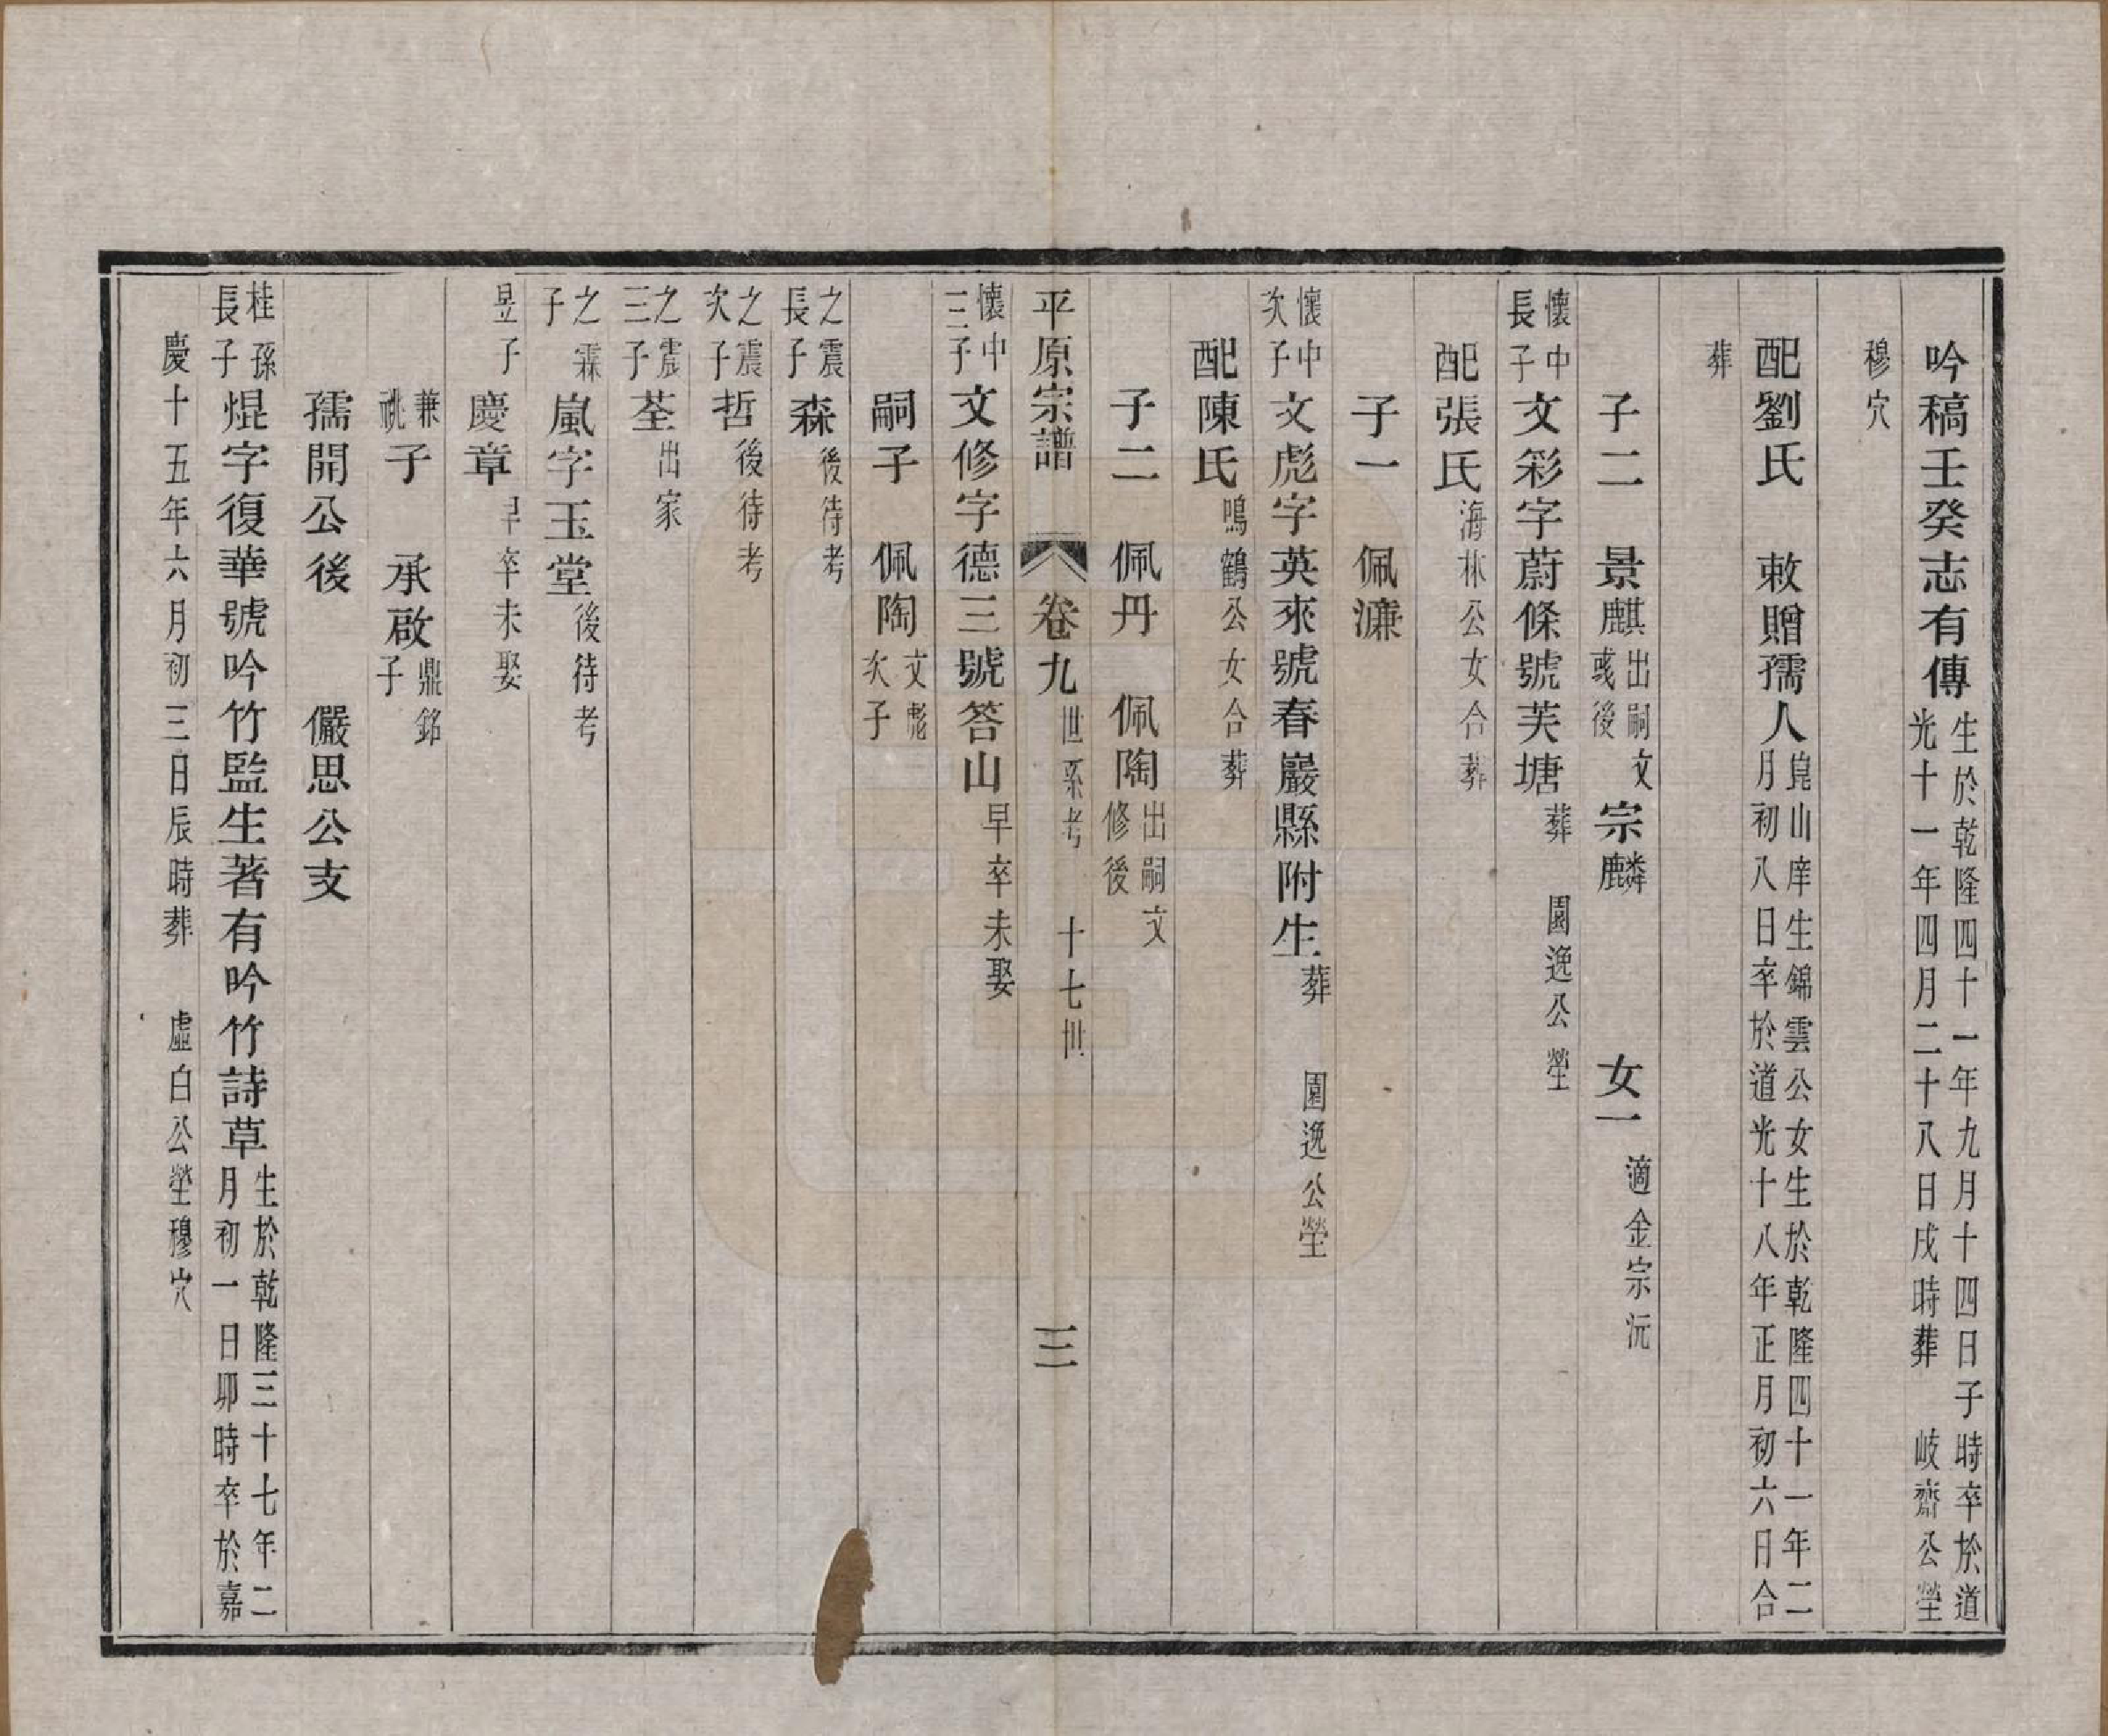 吟稿壬癸志有傳生於乾隆四十一年九月十四日子時卒於道光十一年四月二十八日戌時葬 岐齋公塋
穆穴
配劉氏 敕贈孺人崑山庠生錦雲公女生於乾隆四十一年二月初八日卒於道光十八年正月初六日合
葬
子二 景麒出嗣文彧後 宗麟 女一適金宗沅
懷中長子文彩字蔚條號芙塘葬 園逸公塋
配張氏海林公女合葬
子一 佩濂
懷中次子文彪字英來號春巖縣附生葬 園逸公塋
配陳氏鳴鶴公女合葬
子二 佩丹 佩陶出嗣文修後
平原宗譜 卷九世系考 十七世 三
懷中三子文修字德三號答山早卒未娶
嗣子 佩陶文彪次子
之震長子森後待考
之震次子哲後待考
之震三子荃出家
之霖子嵐字玉堂後待考
昱子慶章早卒未娶
兼祧子 承啟鼎銘子
孺開公後 儼思公支
桂孫長子焜字復華號吟竹監生著有吟竹詩草生於乾隆三十七年二月初一日卯時卒於嘉
慶十五年六月初三日辰時葬 虛白公塋穆穴